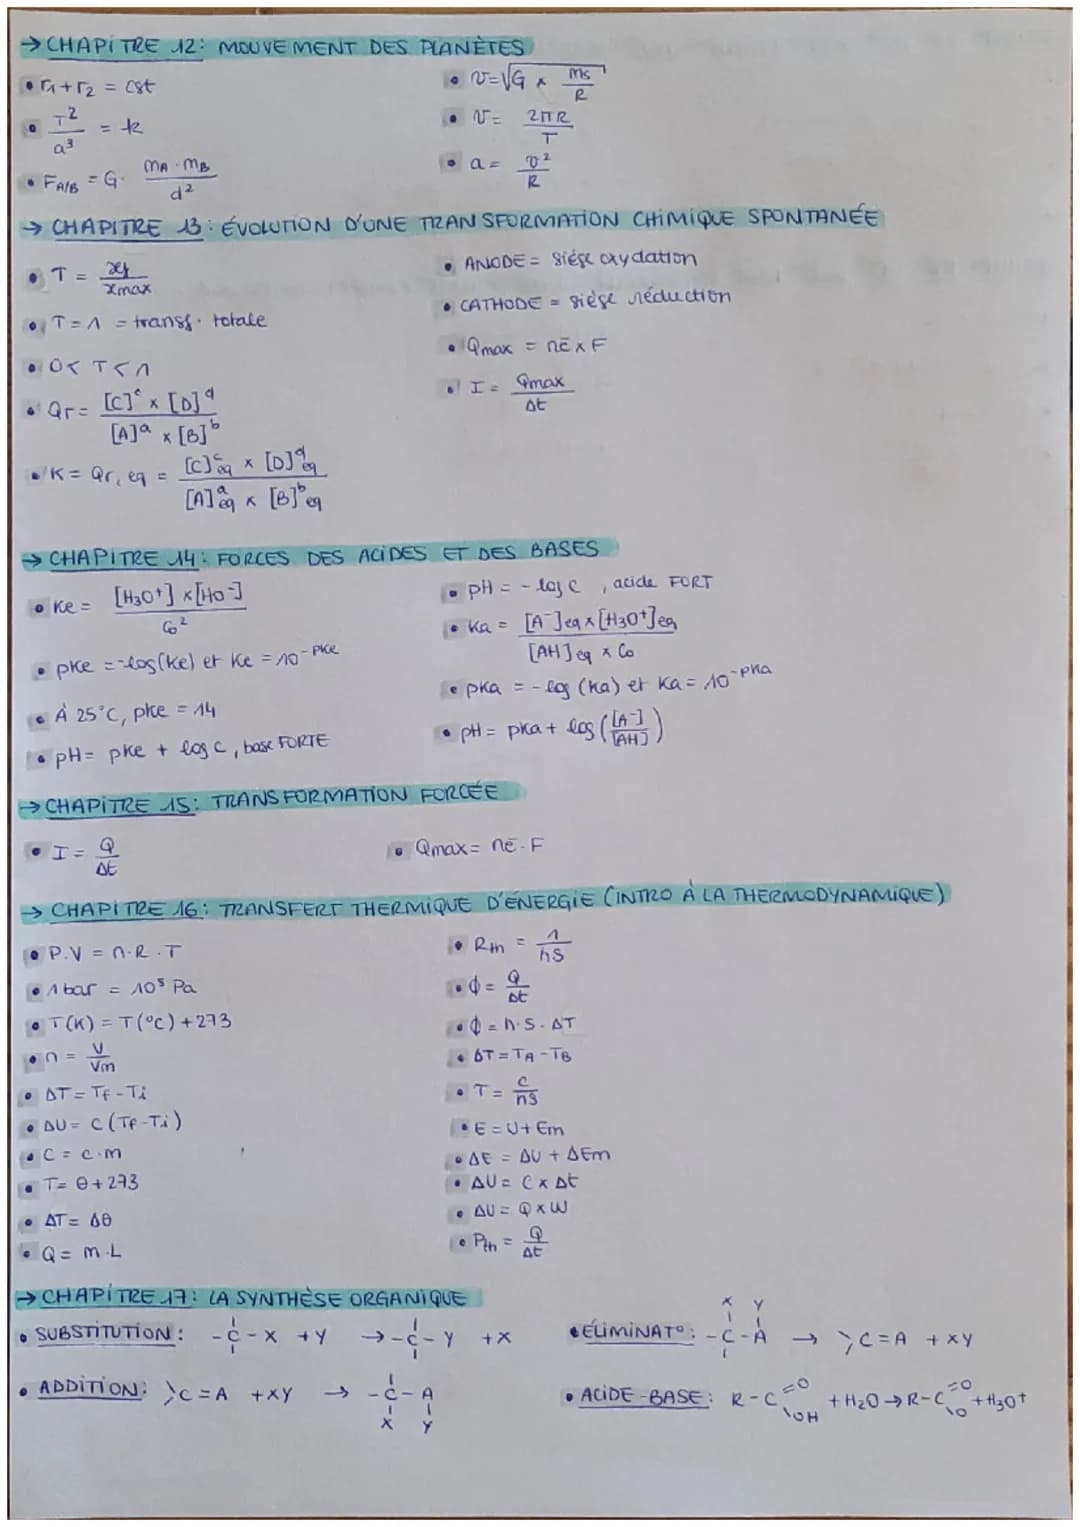 → CHAPITRE 12: MOUVEMENT DES PLANÈTES
• r1 + r2 = cst
• T²/a³ = k
• FA/B = G · (mA · mB)/d²
• v = √(G × Ms/R)
• v = 2πR/T
• a = v²/R
→ CHAPITRE 13: ÉVOLUTION D'UNE TRANSFORMATION CHIMIQUE SPONTANÉE
• T = xf/xmax
• T = 1 = transf. totale
• 0 < T < 1
• Qr = [C]^c × [D]^d / [A]^a × [B]^b
• K = Qr, eq = [C]^c eq × [D]^d eq / [A]^a eq × [B]^b eq
• ANODE = siége oxydation
• CATHODE = siège réduction
• Qmax = nē × F
• I = Qmax/Δt
→ CHAPITRE 14: FORCES DES ACIDES ET DES BASES
• Ke = [H3O+] × [HO-] / C0²
• pKe = -log(Ke) et Ke = 10^-pKe
• À 25°C, pKe = 14
• pH = pKe + log C, base FORTE
• pH = - log C, acide FORT
• Ka = [A-]eq × [H3O+]eq / [AH]eq × C0
• pKa = - log (Ka) et Ka = 10^-pKa
• pH = pKa + log ([A-]/[AH])
→ CHAPITRE 15: TRANSFORMATION FORCÉE
• I = Q/Δt
• Qmax = nē · F
→ CHAPITRE 16: TRANSFERT THERMIQUE D'ÉNERGIE (INTRO À LA THERMODYNAMIQUE)
• P.V = n.R.T
• 1 bar = 10⁵ Pa
• T(K) = T(°C) + 273
• n = V/Vm
• ΔT = Tf - Ti
• ΔU = C (Tf - Ti)
• C = c.m
• T = θ + 273
• ΔT = Δθ
• Q = m.L
• Rth = 1/hS
• ϕ = Q/Δt
• ϕ = h.S.ΔT
• ΔT = TA - TB
• T = C/hS
• E = U + Em
• ΔE = ΔU + ΔEm
• ΔU = C × Δt
• ΔU = Q × W
• Pth = Q/Δt
→ CHAPITRE 17: LA SYNTHÈSE ORGANIQUE
• SUBSTITUTION: -C-X + Y → -C-Y + X
• ADDITION: >C=A + XY → -C-A X Y
• ÉLIMINAT°: X Y -C-A → >C=A + XY
• ACIDE-BASE: R-C =O \OH + H2O → R-C =O \O + H3O+